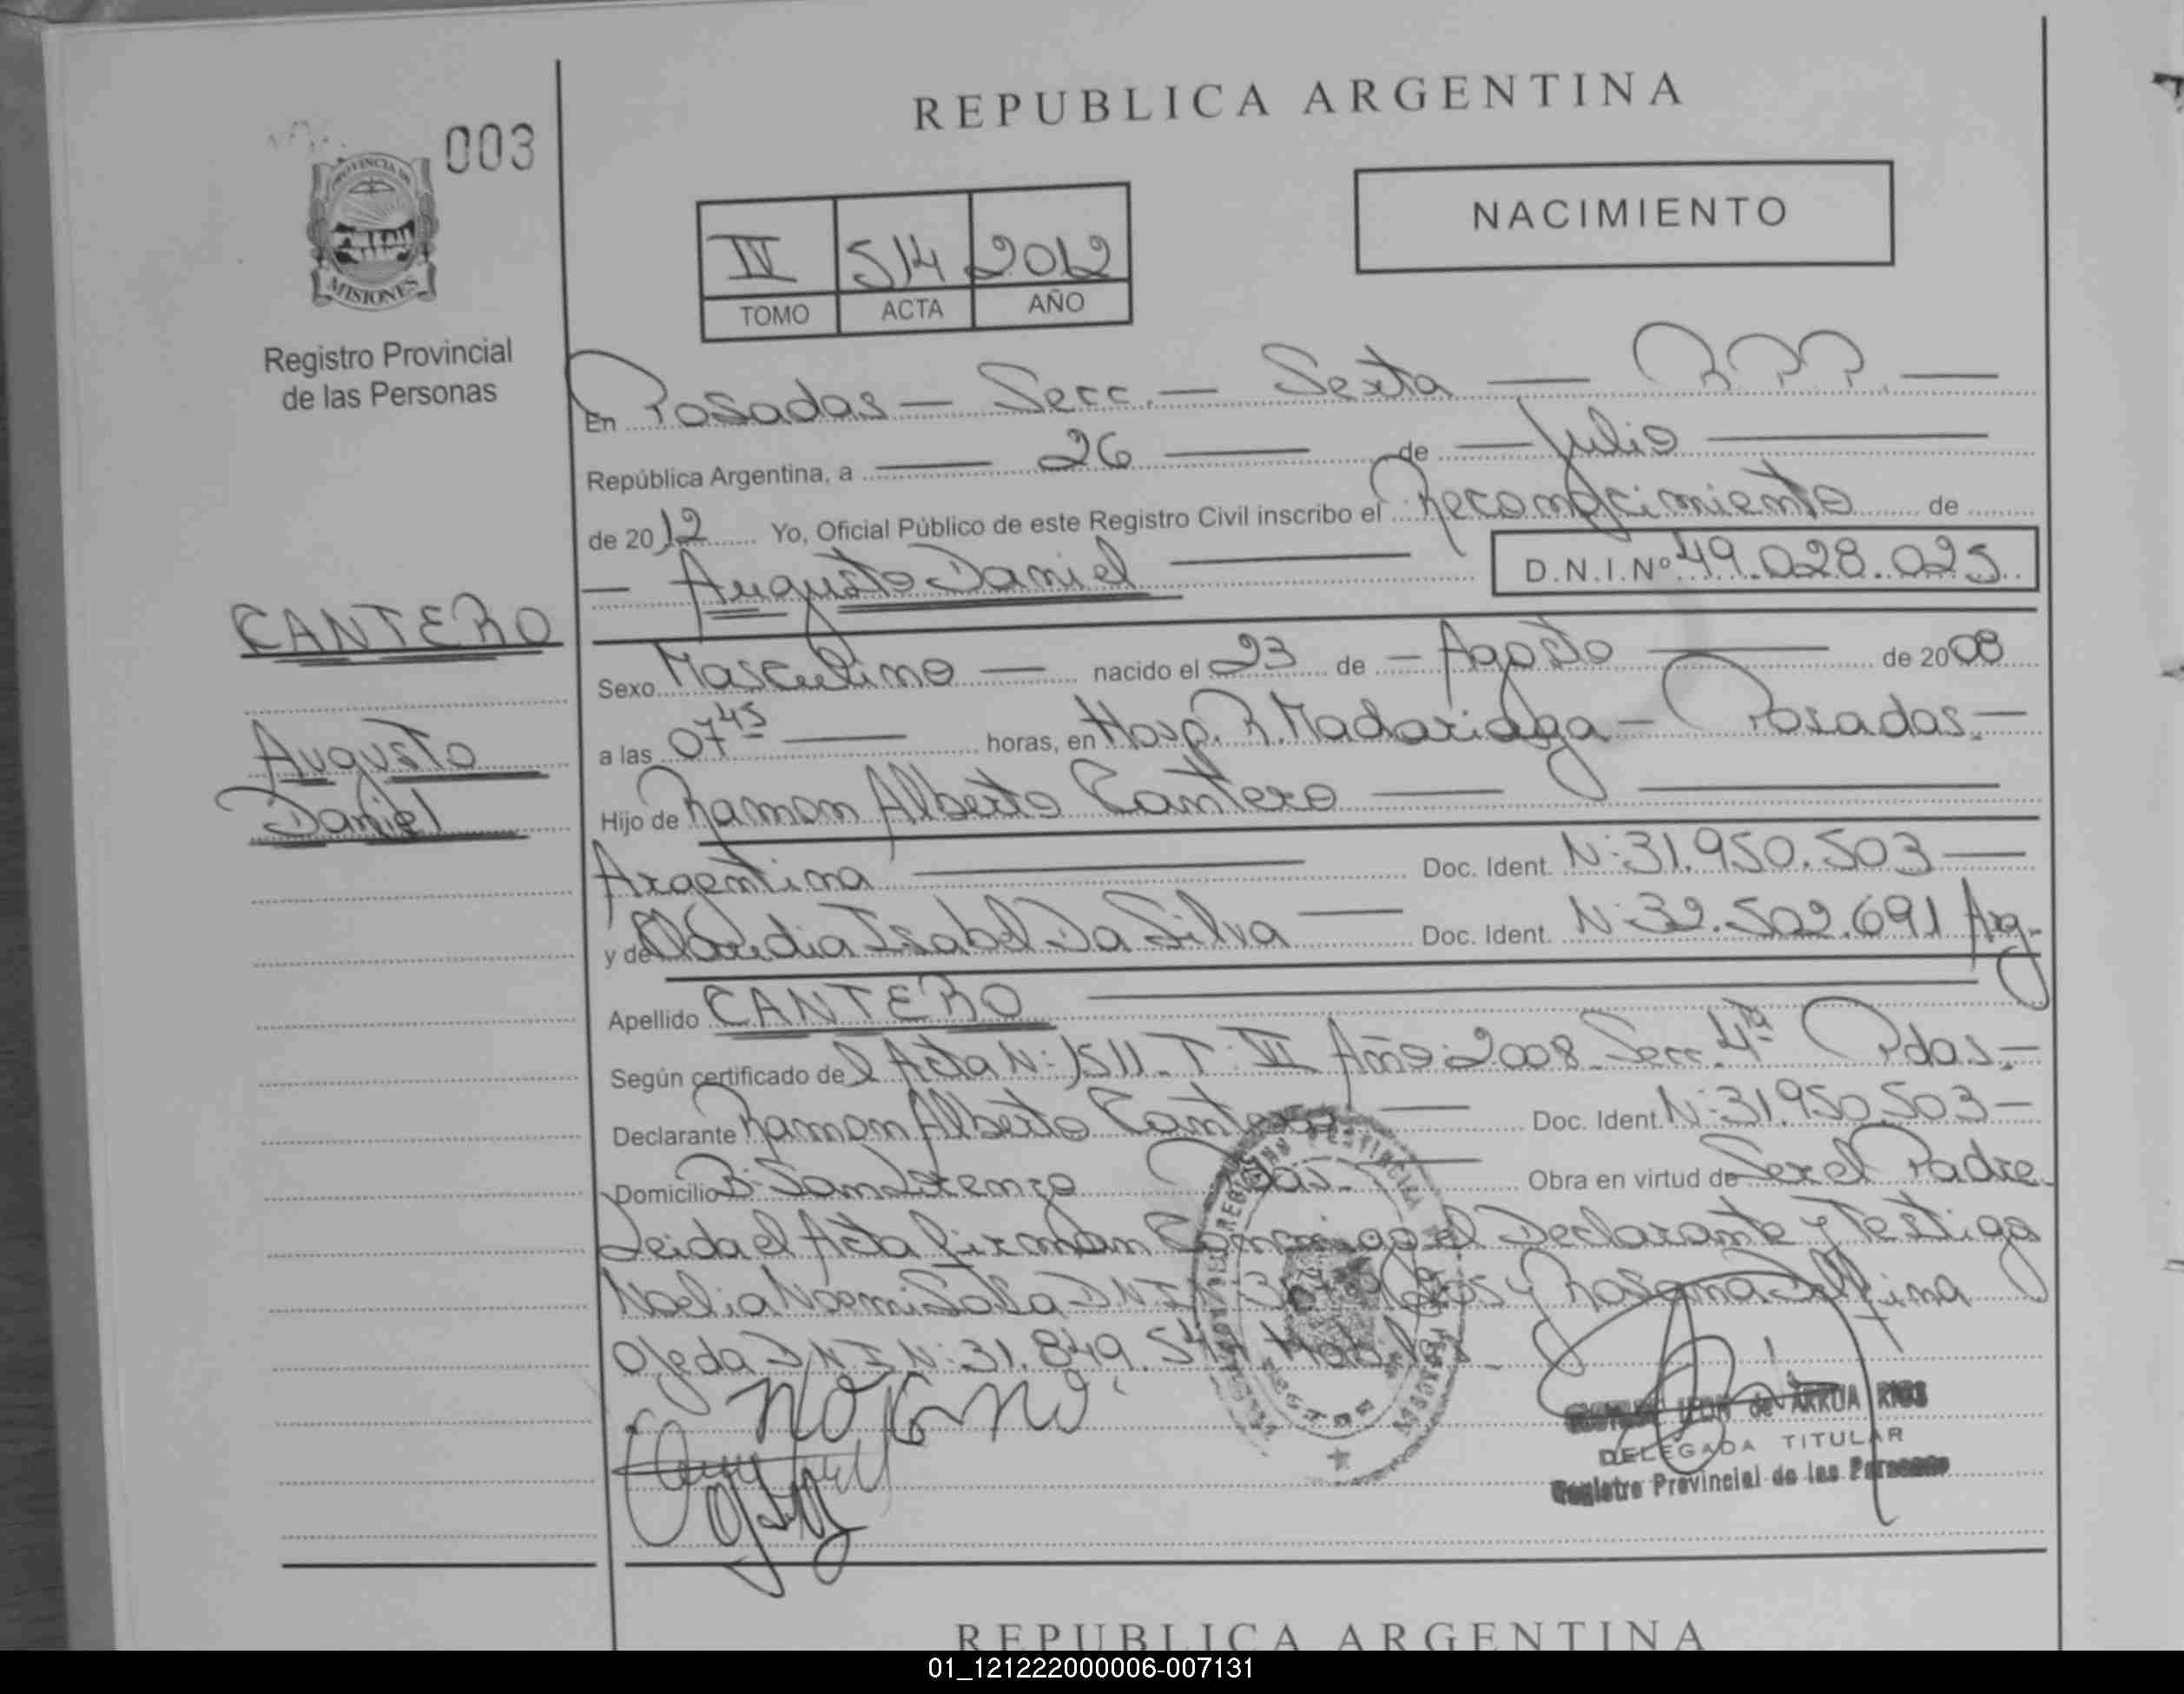 REPUBLICA ARGENTINA
003
PROVINCIA DE
MISIONES
Registro Provincial
de las Personas
NACIMIENTO
IV 514 2012
TOMO ACTA AÑO
En Posadas - Secc. - Sexta - R.P.P. -
República Argentina, a 26 de Julio
de 2012 Yo, Oficial Público de este Registro Civil inscribo el Reconocimiento de
Augusto Daniel D.N.I.Nº 49.028.025
CANTERO
Augusto
Daniel
Sexo Masculino nacido el 23 de Agosto de 2008
a las 07 45 horas, en Hosp. R. Madariaga - Posadas.-
Hijo de Ramon Alberto Cantero
Argentina Doc. Ident. N: 31.950.503
y de Claudia Isabel Da Silva Doc. Ident. N: 32.502.691 Arg.
Apellido CANTERO
Según certificado del Acta N: 1511. T: III Año: 2008 Secc. 4ª Pdas.-
Declarante Ramon Alberto Cantero Doc. Ident. N: 31.950.503
Domicilio B: San Lorenzo Pdas. Obra en virtud de Ser el Padre
Leida el Acta firman Conmigo el Declarante y Testigo
Noelia Noemi DNI N: y Rosana Delfina
Ojeda DNI N: 31.849.
LEON de ARRUA RIOS
DELEGADA TITULAR
Registro Provincial de las Personas
REPUBLICA ARGENTINA
01_121222000006-007131